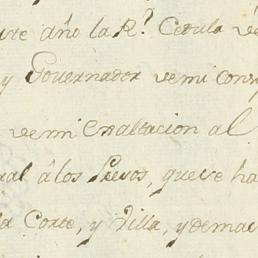 año la R.ˡ Cedula
y Governador de mi Cons
de mi exaltacion al
ral á los Presos, que se ha
la Corte, y Villa, y demas